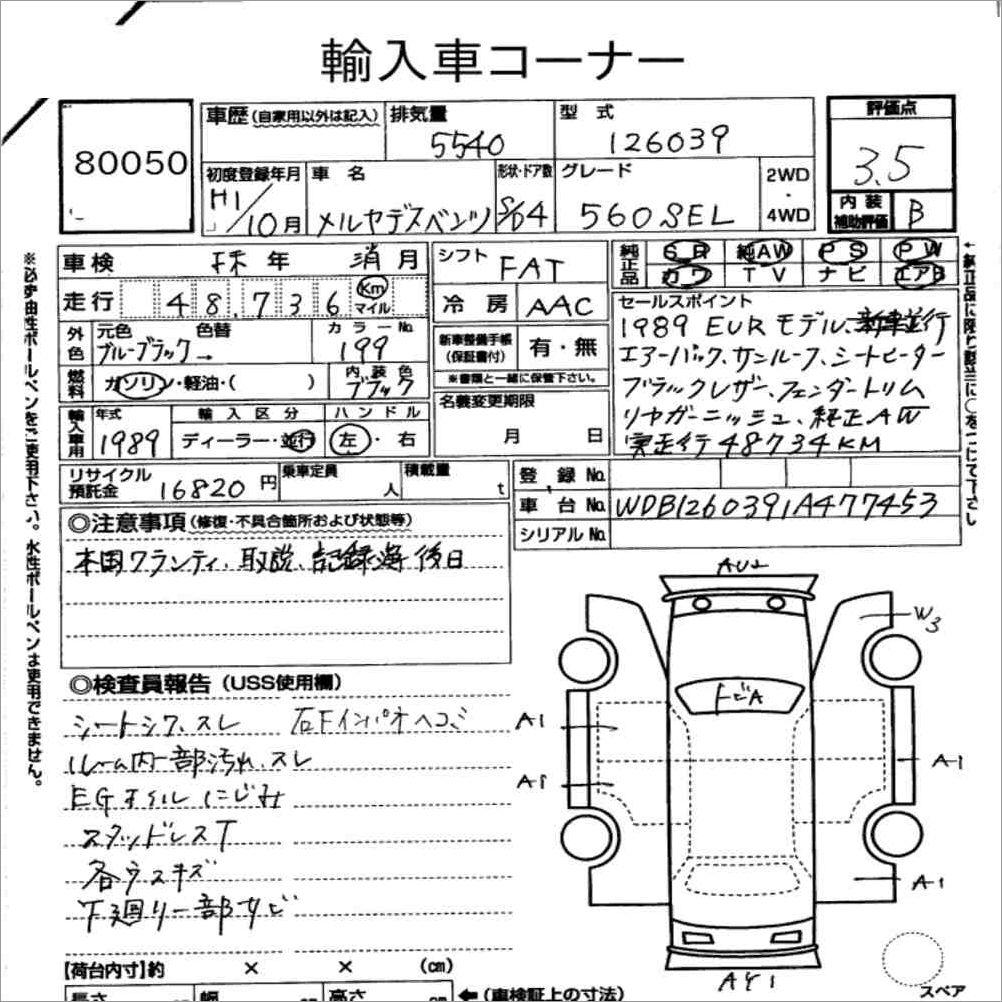 輸入車コーナー
80050
車歴 (自家用以外は記入)
排気量
5540
型式
126039
評価点
3.5
初度登録年月
H1/10月
車名
メルセデスベンツ
形状・ドア数
S/D4
グレード
560SEL
2WD
・
4WD
内装
補助評価
B
車検
年
消月
走行
48,736
Km
マイル
シフト
FAT
冷房
AAC
純正品
SR 純AW PS PW
カワ TV ナビ エアB
外色
元色 色替
ブルーブラック→
カラーNo.
199
燃料
ガソリン・軽油・( )
内装色
ブラック
新車整備手帳
(保証書付)
有・無
※書類と一緒に保管下さい。
名義変更期限
月 日
セールスポイント
1989 EURモデル、新車並行
エアーバック、サンルーフ、シートヒーター
ブラックレザー、フェンダートリム
リヤガーニッシュ、純正AW
実走行48734KM
輸入車用
年式
1989
輸入区分
ディーラー・並行
ハンドル
左・右
リサイクル
預託金
16820円
乗車定員
人
積載量
t
登録No.
車台No.
WDB1260391A477453
シリアルNo.
◎注意事項 (修復・不具合箇所および状態等)
本国ワランティ、取説、記録簿後日
◎検査員報告 (USS使用欄)
シートシワ、スレ
右Fインパネヘコミ
ルーム内一部汚れ、スレ
EGオイルにじみ
スタッドレスT
各ウスキズ
下廻り一部サビ
AU2
W3
FビA
A1
A1
A1
A1
AY1
スペア
【荷台内寸】約 × × (cm)
長さ 幅 高さ
←(車検証上の寸法)
※必ず油性ボールペンをご使用下さい。水性ボールペンは使用できません。
↑純正品に限り該当に○をつけて下さい